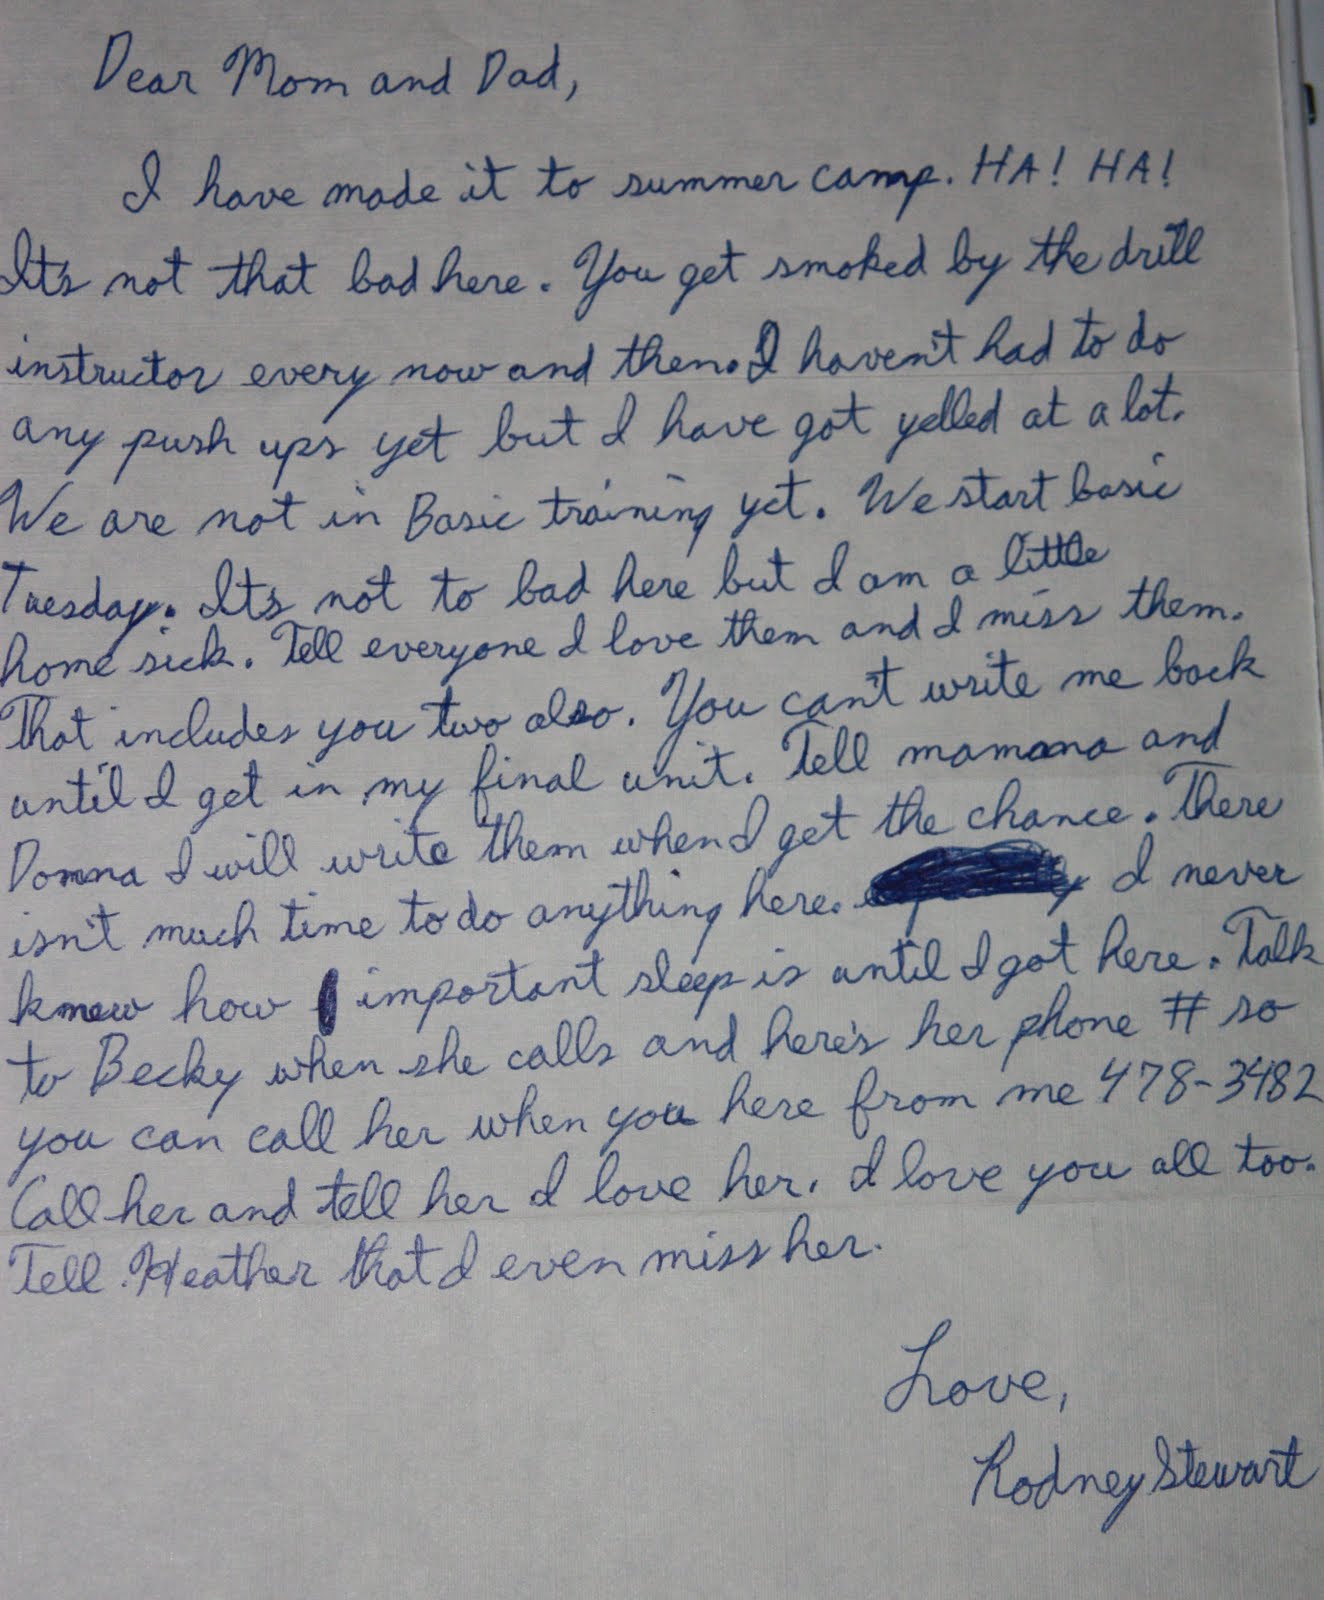 Dear Mom and Dad,
I have made it to summer camp. HA! HA!
It's not that bad here. You get smoked by the drill
instructor every now and then. I haven't had to do
any push ups yet but I have got yelled at a lot.
We are not in Basic training yet. We start basic
Tuesday. It's not to bad here but I am a little
home sick. Tell everyone I love them and I miss them.
That includes you two also. You can't write me back
until I get in my final unit. Tell mamana and
Donna I will write them when I get the chance. There
isn't much time to do anything here. I never
knew how important sleep is until I got here. Talk
to Becky when she calls and here's her phone # so
you can call her when you here from me 478-3482
Call her and tell her I love her. I love you all too.
Tell Heather that I even miss her.
Love,
Rodney Stewart